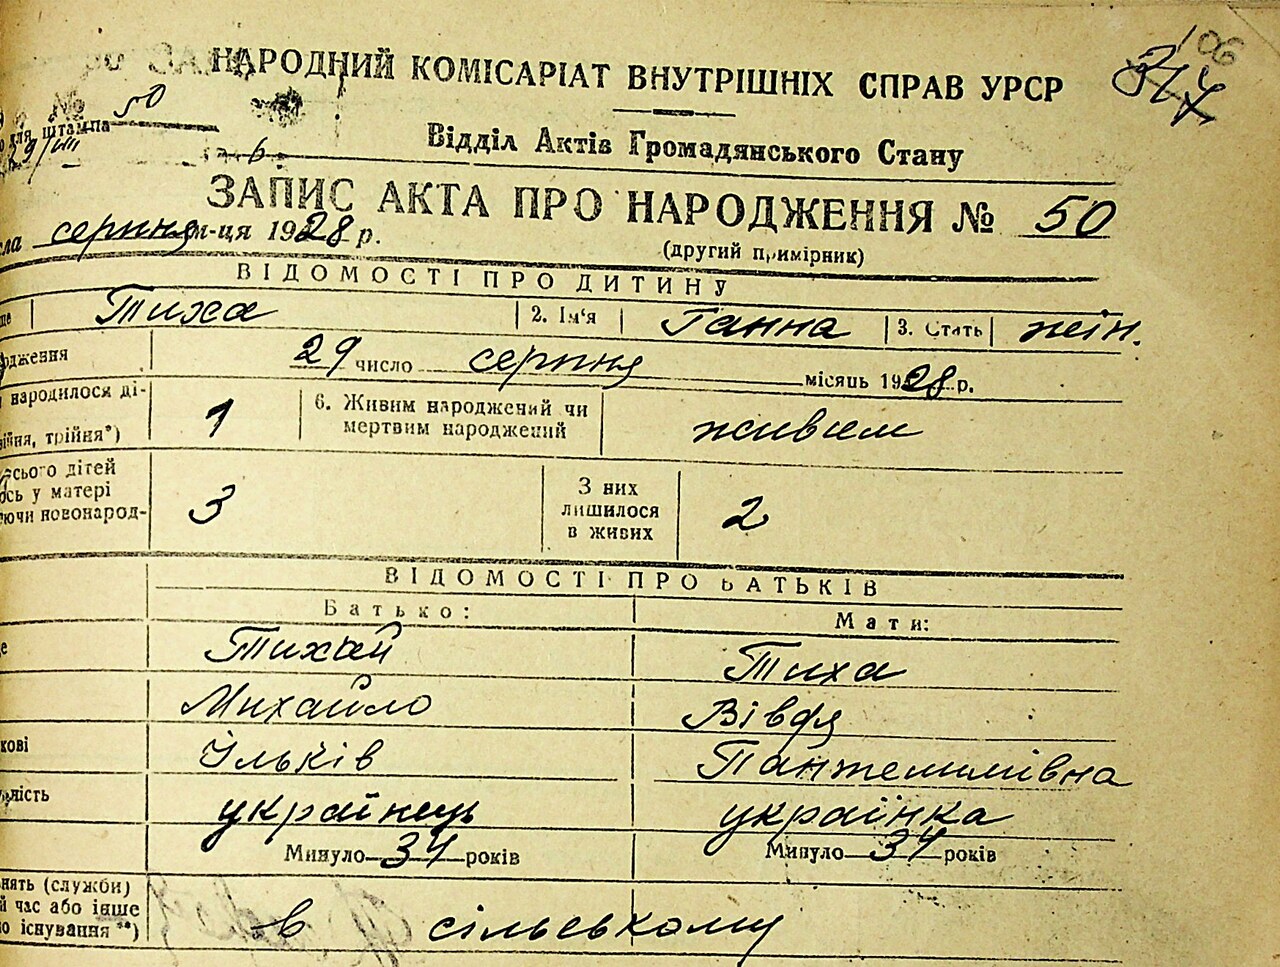 106
314
НАРОДНИЙ КОМІСАРІАТ ВНУТРІШНІХ СПРАВ УРСР
№ 50
для штампа
29/VIII
Відділ Актів Громадянського Стану
ЗАПИС АКТА ПРО НАРОДЖЕННЯ № 50
сла серпня м-ця 1928 р.
(другий примірник)
ВІДОМОСТІ ПРО ДИТИНУ
ще Тиха 2. Ім'я Ганна 3. Стать жін.
родження 29 число серпня місяць 1928 р.
народилося ді-
війня, трійня*) 1 6. Живим народжений чи
мертвим народжений живим
сього дітей
ось у матері
ючи новонарод- 3 З них
лишилося
в живих 2
ВІДОМОСТІ ПРО БАТЬКІВ
Батько: Мати:
е Тихий Тиха
Михайло Вівдя
кові Ільків Пантелимівна
ьність українець українка
Минуло 34 років Минуло 34 років
нять (служби)
й час або інше
о існування **) в сільському